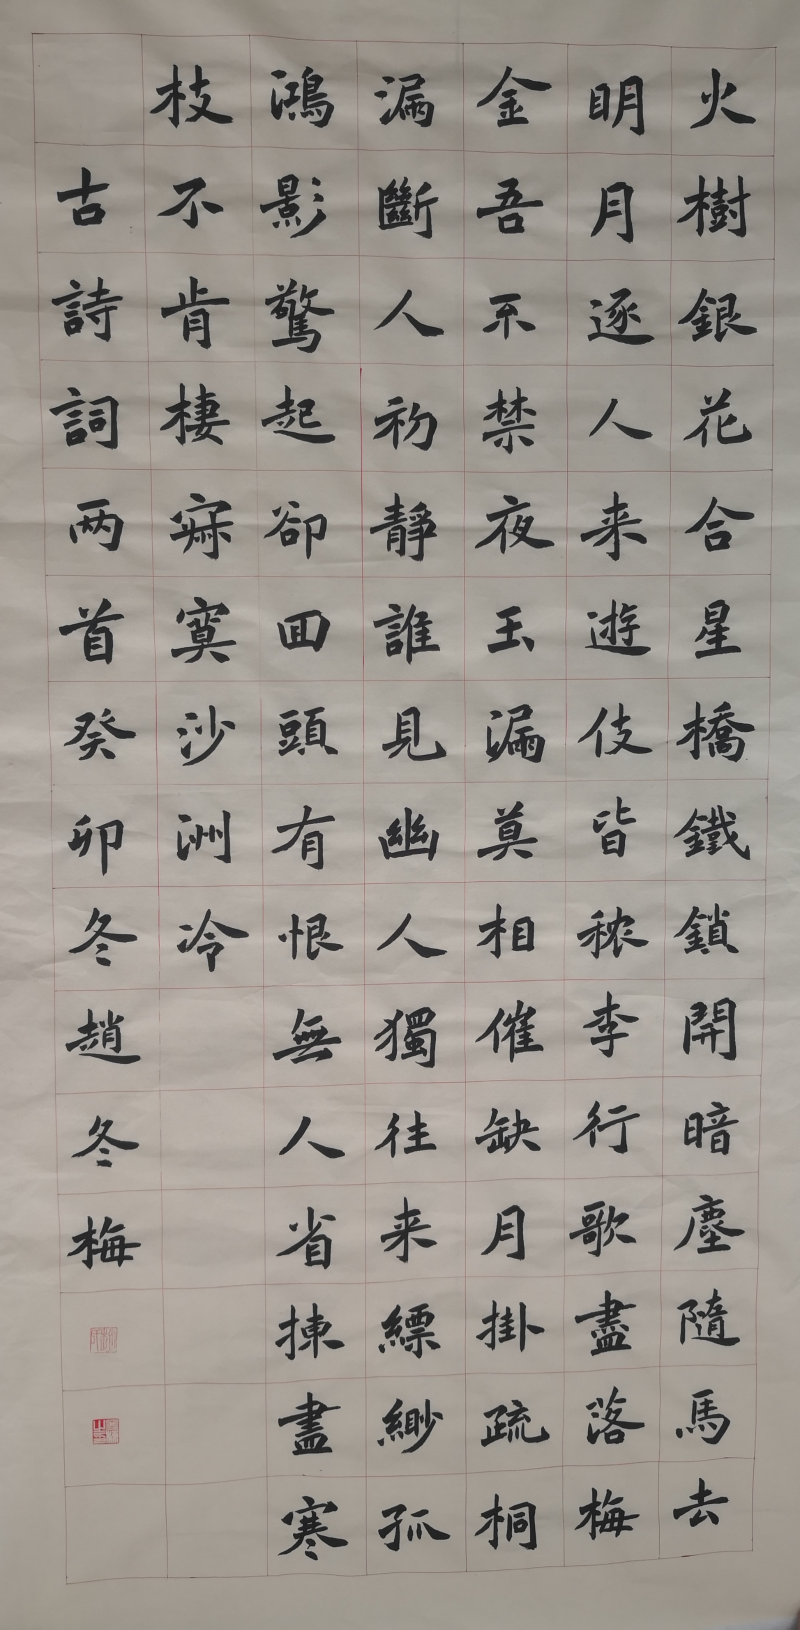 火樹銀花合星橋鐵鎖開暗塵隨馬去
明月逐人来遊伎皆秾李行歌盡落梅
金吾不禁夜玉漏莫相催缺月掛疏桐
漏斷人初靜誰見幽人獨往来縹緲孤
鴻影驚起卻回頭有恨無人省揀盡寒
枝不肯棲寂寞沙洲冷
古詩詞两首癸卯冬趙冬梅